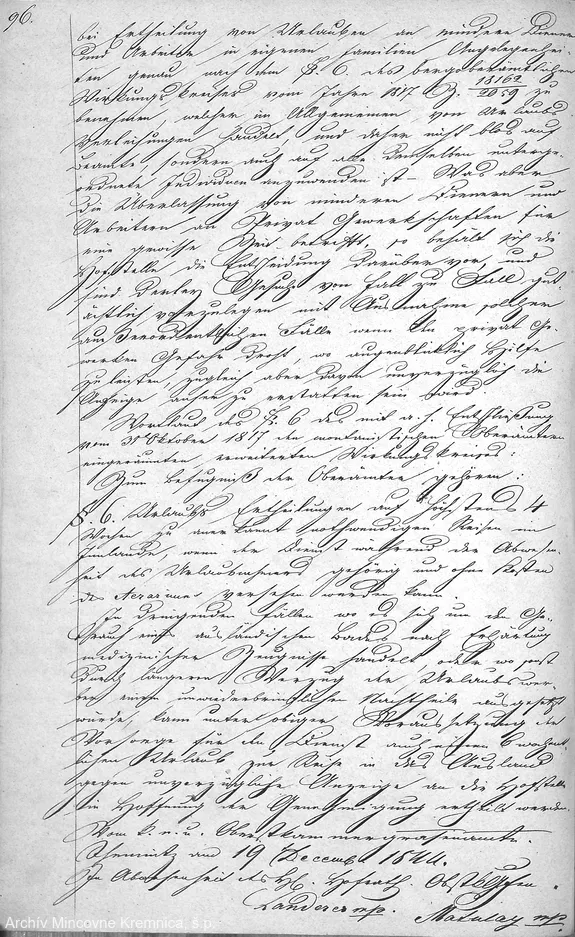 96.
bei Ertheilung von Urlauben an mindere Diener
und Arbeiter in eigenen Familien Angelegenhei-
ten genau nach dem §. 6. des bergoberämtlichen
Wirkungskreises vom Jahre 1817 Z. 18162/2059 zu
benehmen, welcher im Allgemeinen von Urlaubs
Verleihungen handelt, und daher nicht blos auf
Beamte, sondern auch auf alle denselben unterge-
ordnete Individuen anzuwenden ist – Was aber
die Überlassung von minderen Dienern und
Arbeitern an Privat Gewerkschaften für
eine gewisse Zeit betrifft, so behält sich die
Hofstelle die Entscheidung darüber vor, und
sind derley Gesuche von Fall zu Fall gut-
ächtlich vorzulegen mit Ausnahme solcher
außerordentlichen Fälle wenn ein privat Ge-
werken Gefahr droht, wo augenblicklich Hilfe
zu leisten, zugleich aber davon unverzüglich die
Anzeige anher zu erstatten sein wird.
Wortlaut des §. 6 des mit a. h. Entschließung
vom 3t Oktober 1817 den montanistischen Oberämtern
eingeräumten erweiterten Wirkungskreises:
Zum Befugniß der Oberämter gehören:
§. 6. Urlaubs Ertheilungen auf höchstens 4
Wochen zu anerkannt nothwendigen Reisen im
Inlande, wenn der Dienst während der Abwesen-
heit des Urlaubnehmers gehörig und ohne Kosten
des Aerariums versehen werden kann.
In dringenden Fällen wo es sich um den Ge-
brauch eines ausländischen Bades nach Erklärung
medizinischer Zeugnisse handelt oder wo sonst
durch längeren Verzug der Urlaubswer-
ber einem unwiederbringlichen Nachtheile ausgesetzt
würde, kann unter obiger Voraussetzung der
Vorsorge für den Dienst auch einen 6 wochent-
lichen Urlaub zur Reise in das Ausland
gegen unverzügliche Anzeige an die Hofstelle
in Hoffnung der Genehmigung ertheilt werden.
Vom k. n. u. Oberstkammergrafenamte.
Schemnitz am 19 Decemb. 1844.
In Abwesenheit des H. Hofrath
Landerer mp. Matulay mp.
Archív Mincovne Kremnica, š.p.